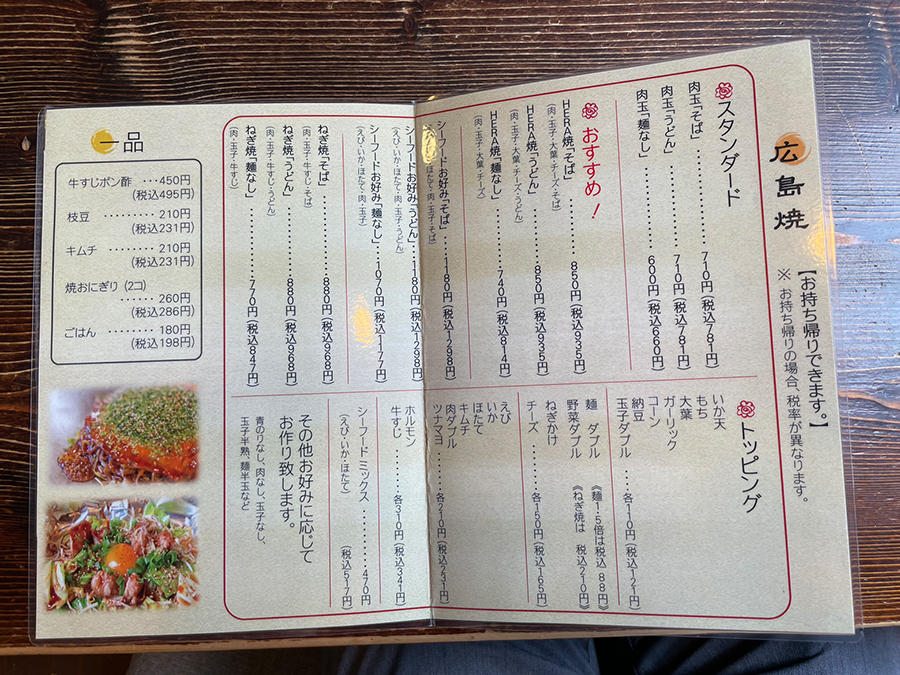 広島焼
【お持ち帰りできます。】
※ お持ち帰りの場合、税率が異なります。
スタンダード
肉玉「そば」 ‥‥‥ 710円（税込781円）
肉玉「うどん」 ‥‥‥ 710円（税込781円）
肉玉「麺なし」 ‥‥‥ 600円（税込660円）
おすすめ！
HERA焼「そば」 ‥‥‥ 850円（税込935円）
（肉・玉子・大葉・チーズ・そば）
HERA焼「うどん」 ‥‥‥ 850円（税込935円）
（肉・玉子・大葉・チーズ・うどん）
HERA焼「麺なし」 ‥‥‥ 740円（税込814円）
（肉・玉子・大葉・チーズ）
シーフードお好み「そば」 ‥‥‥ 1180円（税込1298円）
ほたて・肉・玉子・そば）
シーフードお好み「うどん」 ‥‥‥ 1180円（税込1298円）
（えび・いか・ほたて・肉・玉子・うどん）
シーフードお好み「麺なし」 ‥‥‥ 1070円（税込1177円）
（えび・いか・ほたて・肉・玉子）
ねぎ焼「そば」 ‥‥‥ 880円（税込968円）
（肉・玉子・牛すじ・そば）
ねぎ焼「うどん」 ‥‥‥ 880円（税込968円）
（肉・玉子・牛すじ・うどん）
ねぎ焼「麺なし」 ‥‥‥ 770円（税込847円）
（肉・玉子・牛すじ）
トッピング
いか天
もち
大葉
ガーリック
コーン
納豆
玉子ダブル ‥‥‥ 各110円（税込121円）
麺 ダブル 《麺1.5倍は税込 88円》
野菜ダブル 《ねぎ焼は 税込210円》
ねぎかけ
チーズ ‥‥‥ 各150円（税込165円）
えび
いか
ほたて
キムチ
肉ダブル
ツナマヨ ‥‥‥ 各210円（税込231円）
ホルモン
牛すじ ‥‥‥ 各310円（税込341円）
シーフードミックス ‥‥‥ 470円
（えび・いか・ほたて） （税込517円）
その他お好みに応じて
お作り致します。
青のりなし、肉なし、玉子なし、
玉子半熟、麺半玉など
一品
牛すじポン酢 ‥‥ 450円
（税込495円）
枝豆 ‥‥‥ 210円
（税込231円）
キムチ ‥‥‥ 210円
（税込231円）
焼おにぎり（2コ）
‥‥‥ 260円
（税込286円）
ごはん ‥‥‥ 180円
（税込198円）